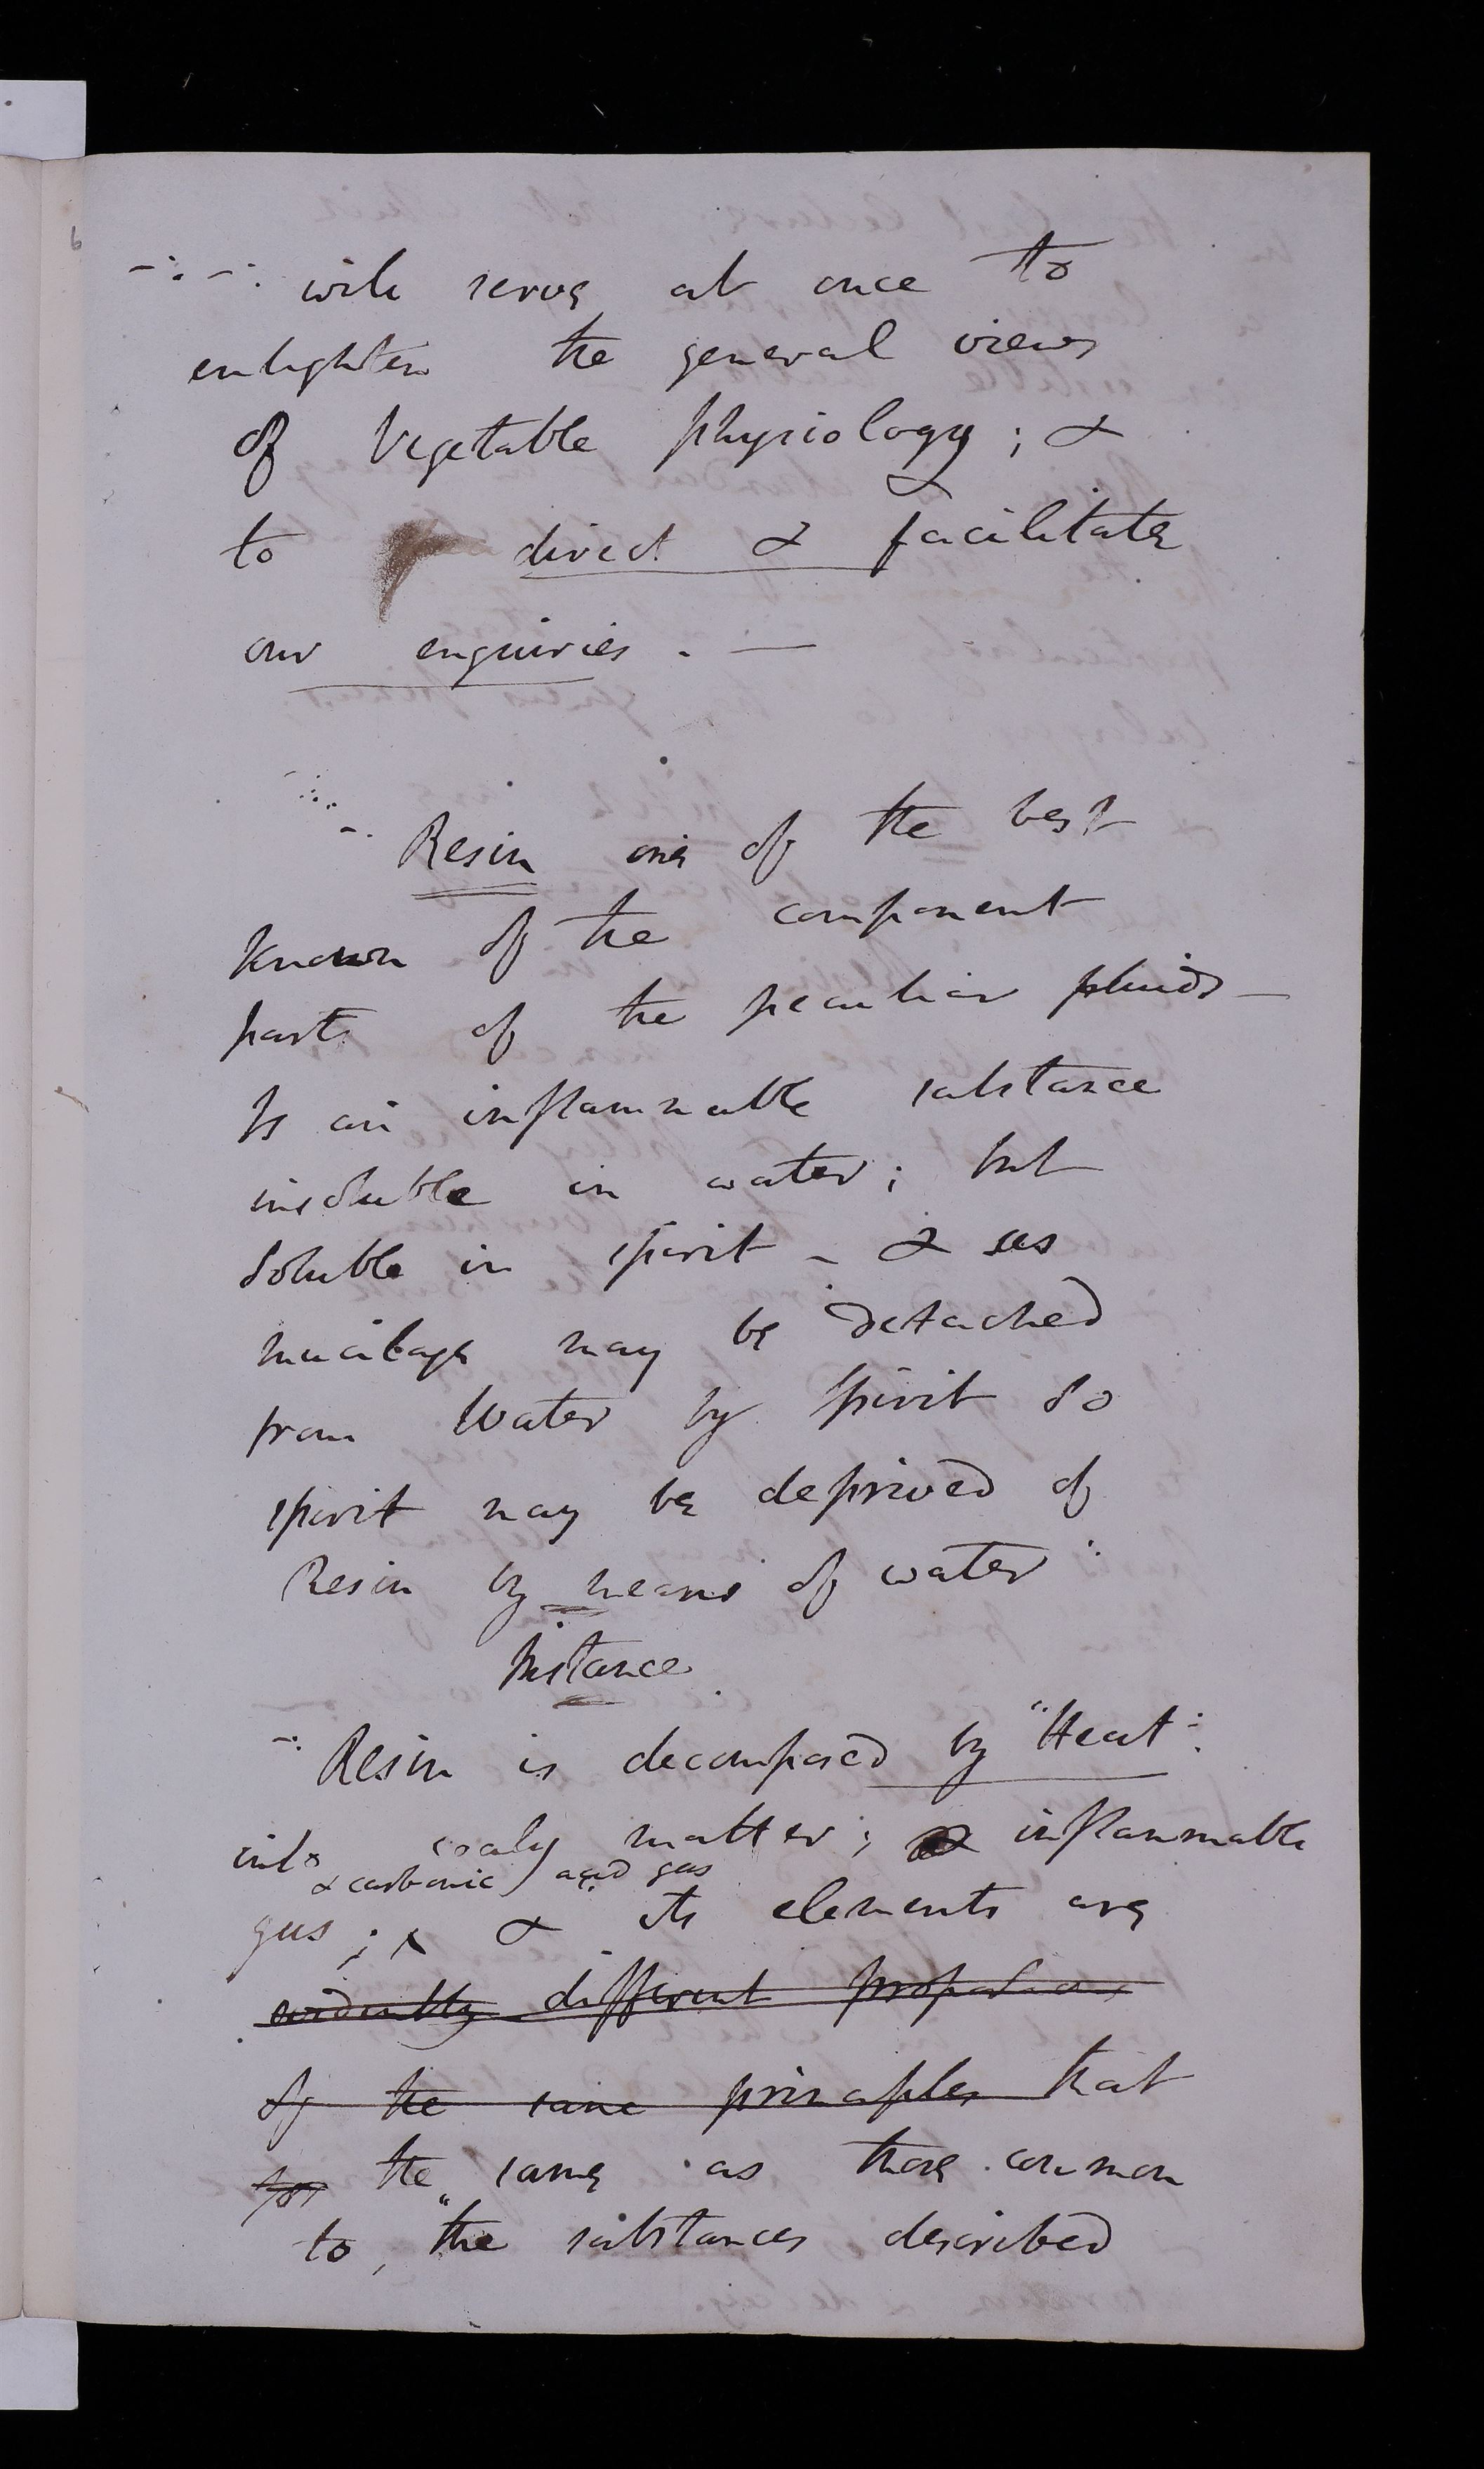 6
-:-: will serve at once to
enlighten the general views
of Vegetable physiology; &
to direct & facilitate
our enquiries. —
Resin one of the best
known of the component
parts of the peculiar fluids —
Is an inflammable substance
insoluble in water; but
soluble in spirit - & as
mucilage may be detached
from Water by spirit so
spirit may be deprived of
Resin by means of water
Instance
-: Resin is decomposed by "Heat":
into coaly matter; & inflammable
& carbonic acid gas
gas; ^ & its elements are
evidently different proportions
of the same principles that
for the same as those common
to, "the substances described